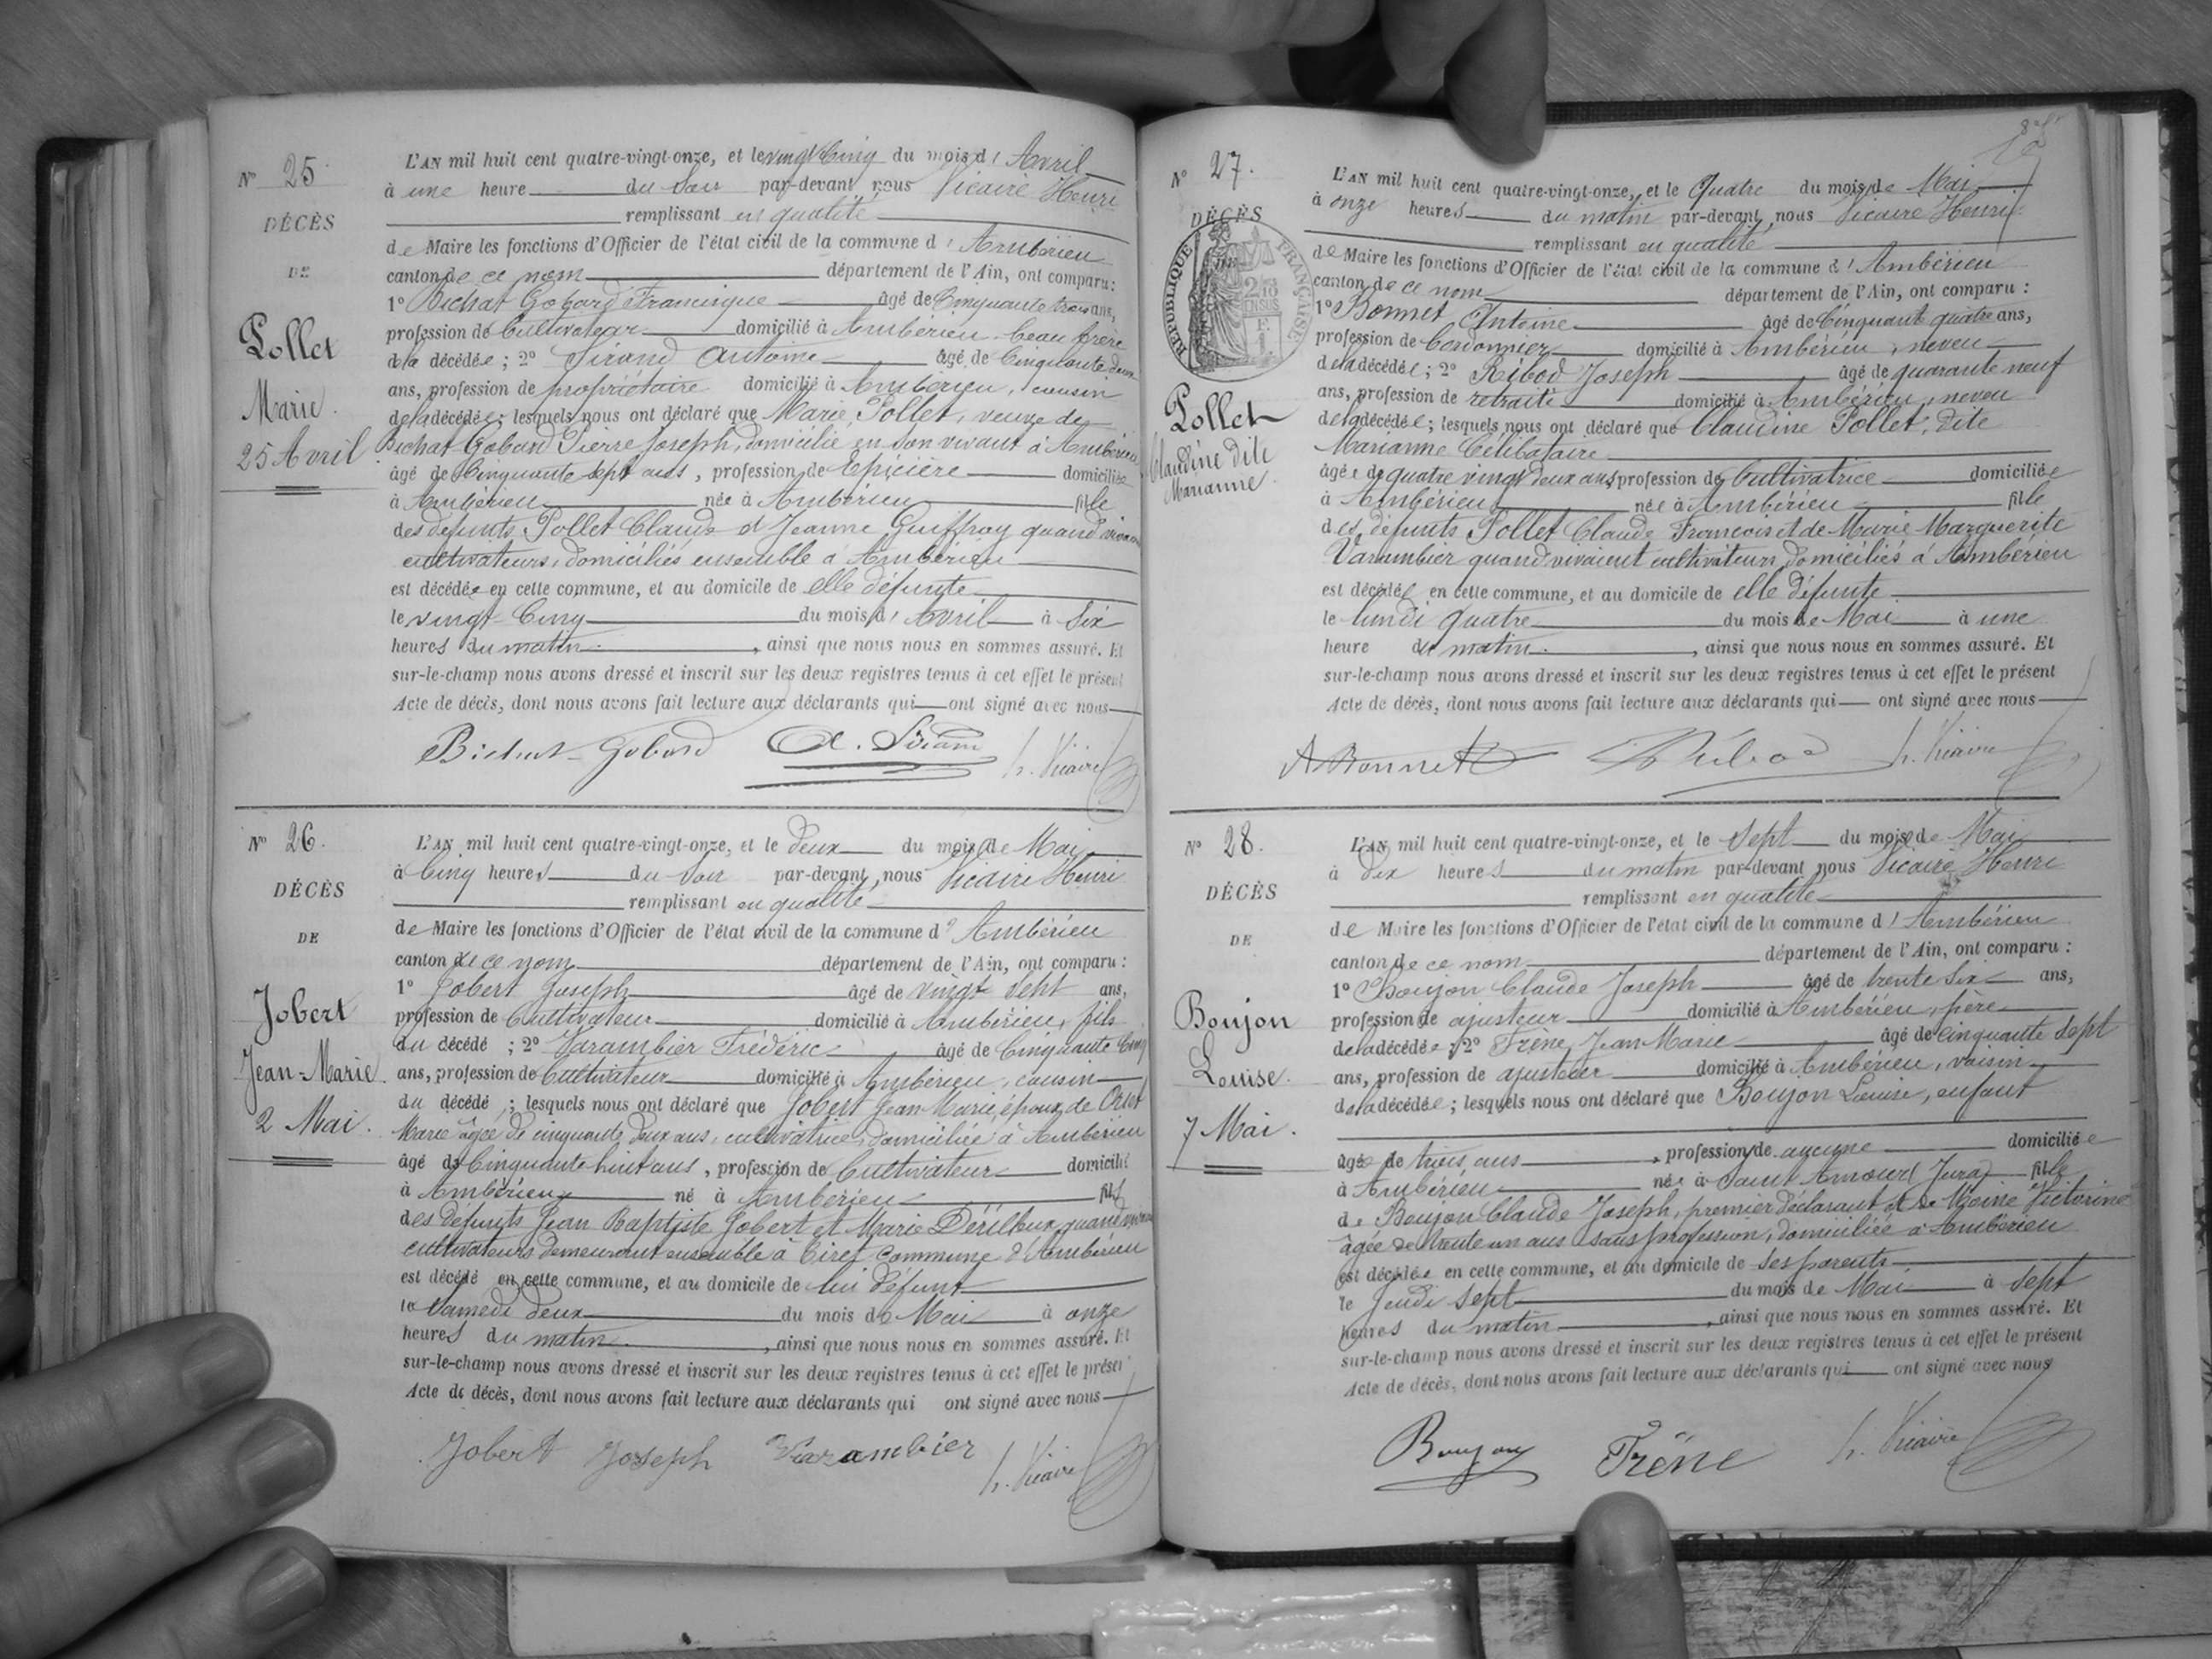 N° 25
DÉCÈS
DE
Pollet
Marie.
25 Avril
L'AN mil huit cent quatre-vingt-onze, et le vingt Cinq du mois d'Avril
à une heure du soir par-devant nous Vicaire Henri
remplissant en qualité
de Maire les fonctions d'Officier de l'état civil de la commune d'Ambérieu
canton de ce nom département de l'Ain, ont comparu :
1° Bichat Gobard Francisque âgé de Cinquante trois ans,
profession de Cultivateur domicilié à Ambérieu, beau frère
de la décédée ; 2° Sirand Antoine âgé de Cinquante deux
ans, profession de propriétaire domicilié à Ambérieu, cousin
de la décédée ; lesquels nous ont déclaré que Marie Pollet, veuve de
Bichat-Gobard Pierre Joseph, domiciliée en son vivant à Ambérieu
âgé de Cinquante sept ans, profession de Epicière domiciliée
à Ambérieu née à Ambérieu fille
des défunts Pollet Claude et Jeanne Guiffray quand vivaient
cultivateurs, domiciliés ensemble à Ambérieu
est décédée en cette commune, et au domicile de elle défunte
le vingt-Cinq du mois d'Avril à Six
heures du matin. , ainsi que nous nous en sommes assuré. Et
sur-le-champ nous avons dressé et inscrit sur les deux registres tenus à cet effet le présent
Acte de décès, dont nous avons fait lecture aux déclarants qui ont signé avec nous
Bichat-Gobard A. Sirand h. Vicaire
N° 26.
DÉCÈS
DE
Jobert
Jean-Marie.
2 Mai.
L'AN mil huit cent quatre-vingt-onze, et le deux du mois de Mai
à Cinq heures du soir par-devant nous Vicaire Henri
remplissant en qualité
de Maire les fonctions d'Officier de l'état civil de la commune d'Ambérieu
canton de ce nom département de l'Ain, ont comparu :
1° Jobert Joseph âgé de vingt sept ans,
profession de Cultivateur domicilié à Ambérieu, fils
du décédé ; 2° Varambier Frédéric âgé de Cinquante Cinq
ans, profession de Cultivateur domicilié à Ambérieu, cousin
du décédé ; lesquels nous ont déclaré que Jobert Jean Marie, époux de
Marie âgée de cinquante deux ans, cultivatrice, domiciliée à Ambérieu
âgé de Cinquante huit ans, profession de Cultivateur domicilié
à Ambérieu né à Ambérieu fils
des défunts Jean Baptiste Jobert et Marie quand vivaient
cultivateurs demeurant ensemble à Tiret commune d'Ambérieu
est décédé en cette commune, et au domicile de lui défunt
le Samedi deux du mois de Mai à onze
heures du matin. , ainsi que nous nous en sommes assuré. Et
sur-le-champ nous avons dressé et inscrit sur les deux registres tenus à cet effet le présent
Acte de décès, dont nous avons fait lecture aux déclarants qui ont signé avec nous
Jobert Joseph Varambier h. Vicaire
N° 27.
DÉCÈS
RÉPUBLIQUE FRANÇAISE
Pollet
Claudine dite
Marianne.
L'AN mil huit cent quatre-vingt-onze, et le Quatre du mois de Mai
à onze heures du matin par-devant nous Vicaire Henri
remplissant en qualité
de Maire les fonctions d'Officier de l'état civil de la commune d'Ambérieu
canton de ce nom département de l'Ain, ont comparu :
1° Bonnet Antoine âgé de Cinquante quatre ans,
profession de Cordonnier domicilié à Ambérieu, neveu
de la décédée ; 2° Ribod Joseph âgé de quarante neuf
ans, profession de retraité domicilié à Ambérieu, neveu
de la décédée ; lesquels nous ont déclaré que Claudine Pollet, dite
Marianne Célibataire
âgée de quatre vingt deux ans, profession de Cultivatrice domiciliée
à Ambérieu née à Ambérieu fille
des défunts Pollet Claude François et de Marie Marguerite
Varambier quand vivaient cultivateurs domiciliés à Ambérieu
est décédée en cette commune, et au domicile de elle défunte
le lundi quatre du mois de Mai à une
heure du matin. , ainsi que nous nous en sommes assuré. Et
sur-le-champ nous avons dressé et inscrit sur les deux registres tenus à cet effet le présent
Acte de décès, dont nous avons fait lecture aux déclarants qui ont signé avec nous
A Bonnet Ribod h. Vicaire
N° 28.
DÉCÈS
DE
Boujon
Louise.
7 Mai.
L'AN mil huit cent quatre-vingt-onze, et le Sept du mois de Mai
à Dix heures du matin par-devant nous Vicaire Henri
remplissant en qualité
de Maire les fonctions d'Officier de l'état civil de la commune d'Ambérieu
canton de ce nom département de l'Ain, ont comparu :
1° Boujon Claude Joseph âgé de trente Six ans,
profession de ajusteur domicilié à Ambérieu, père
de la décédée ; 2° Frène Jean Marie âgé de Cinquante Sept
ans, profession de ajusteur domicilié à Ambérieu, voisin
de la décédée ; lesquels nous ont déclaré que Boujon Louise, enfant
âgée de trois ans , profession de aucune domiciliée
à Ambérieu née à Saint Amour (Jura) fille
de Boujon Claude Joseph, premier déclarant et de Moine Victorine
âgée de trente un ans sans profession, domiciliée à Ambérieu
est décédée en cette commune, et au domicile de ses parents
le Jeudi sept du mois de Mai à Sept
heures du matin , ainsi que nous nous en sommes assuré. Et
sur-le-champ nous avons dressé et inscrit sur les deux registres tenus à cet effet le présent
Acte de décès, dont nous avons fait lecture aux déclarants qui ont signé avec nous
Boujon Frène h. Vicaire